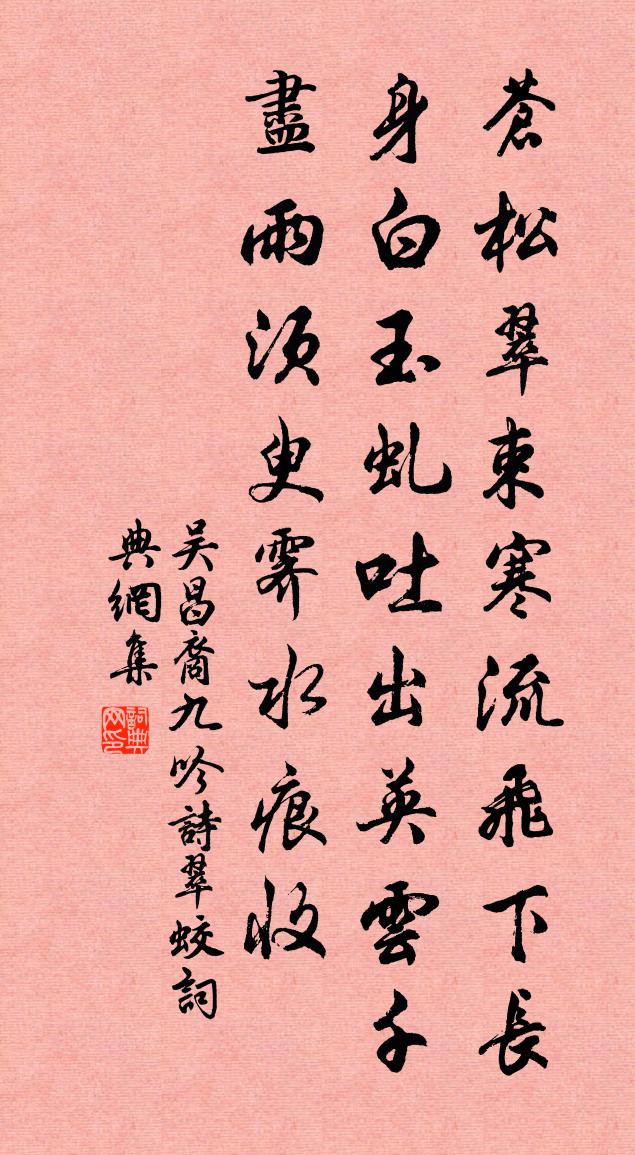 蒼松翠束寒流飛下長
身白玉虬吐出英雲千
盡雨須臾霽水痕收
吳昌裔九吟詩翠蛟詞
典網集
詞典
网印